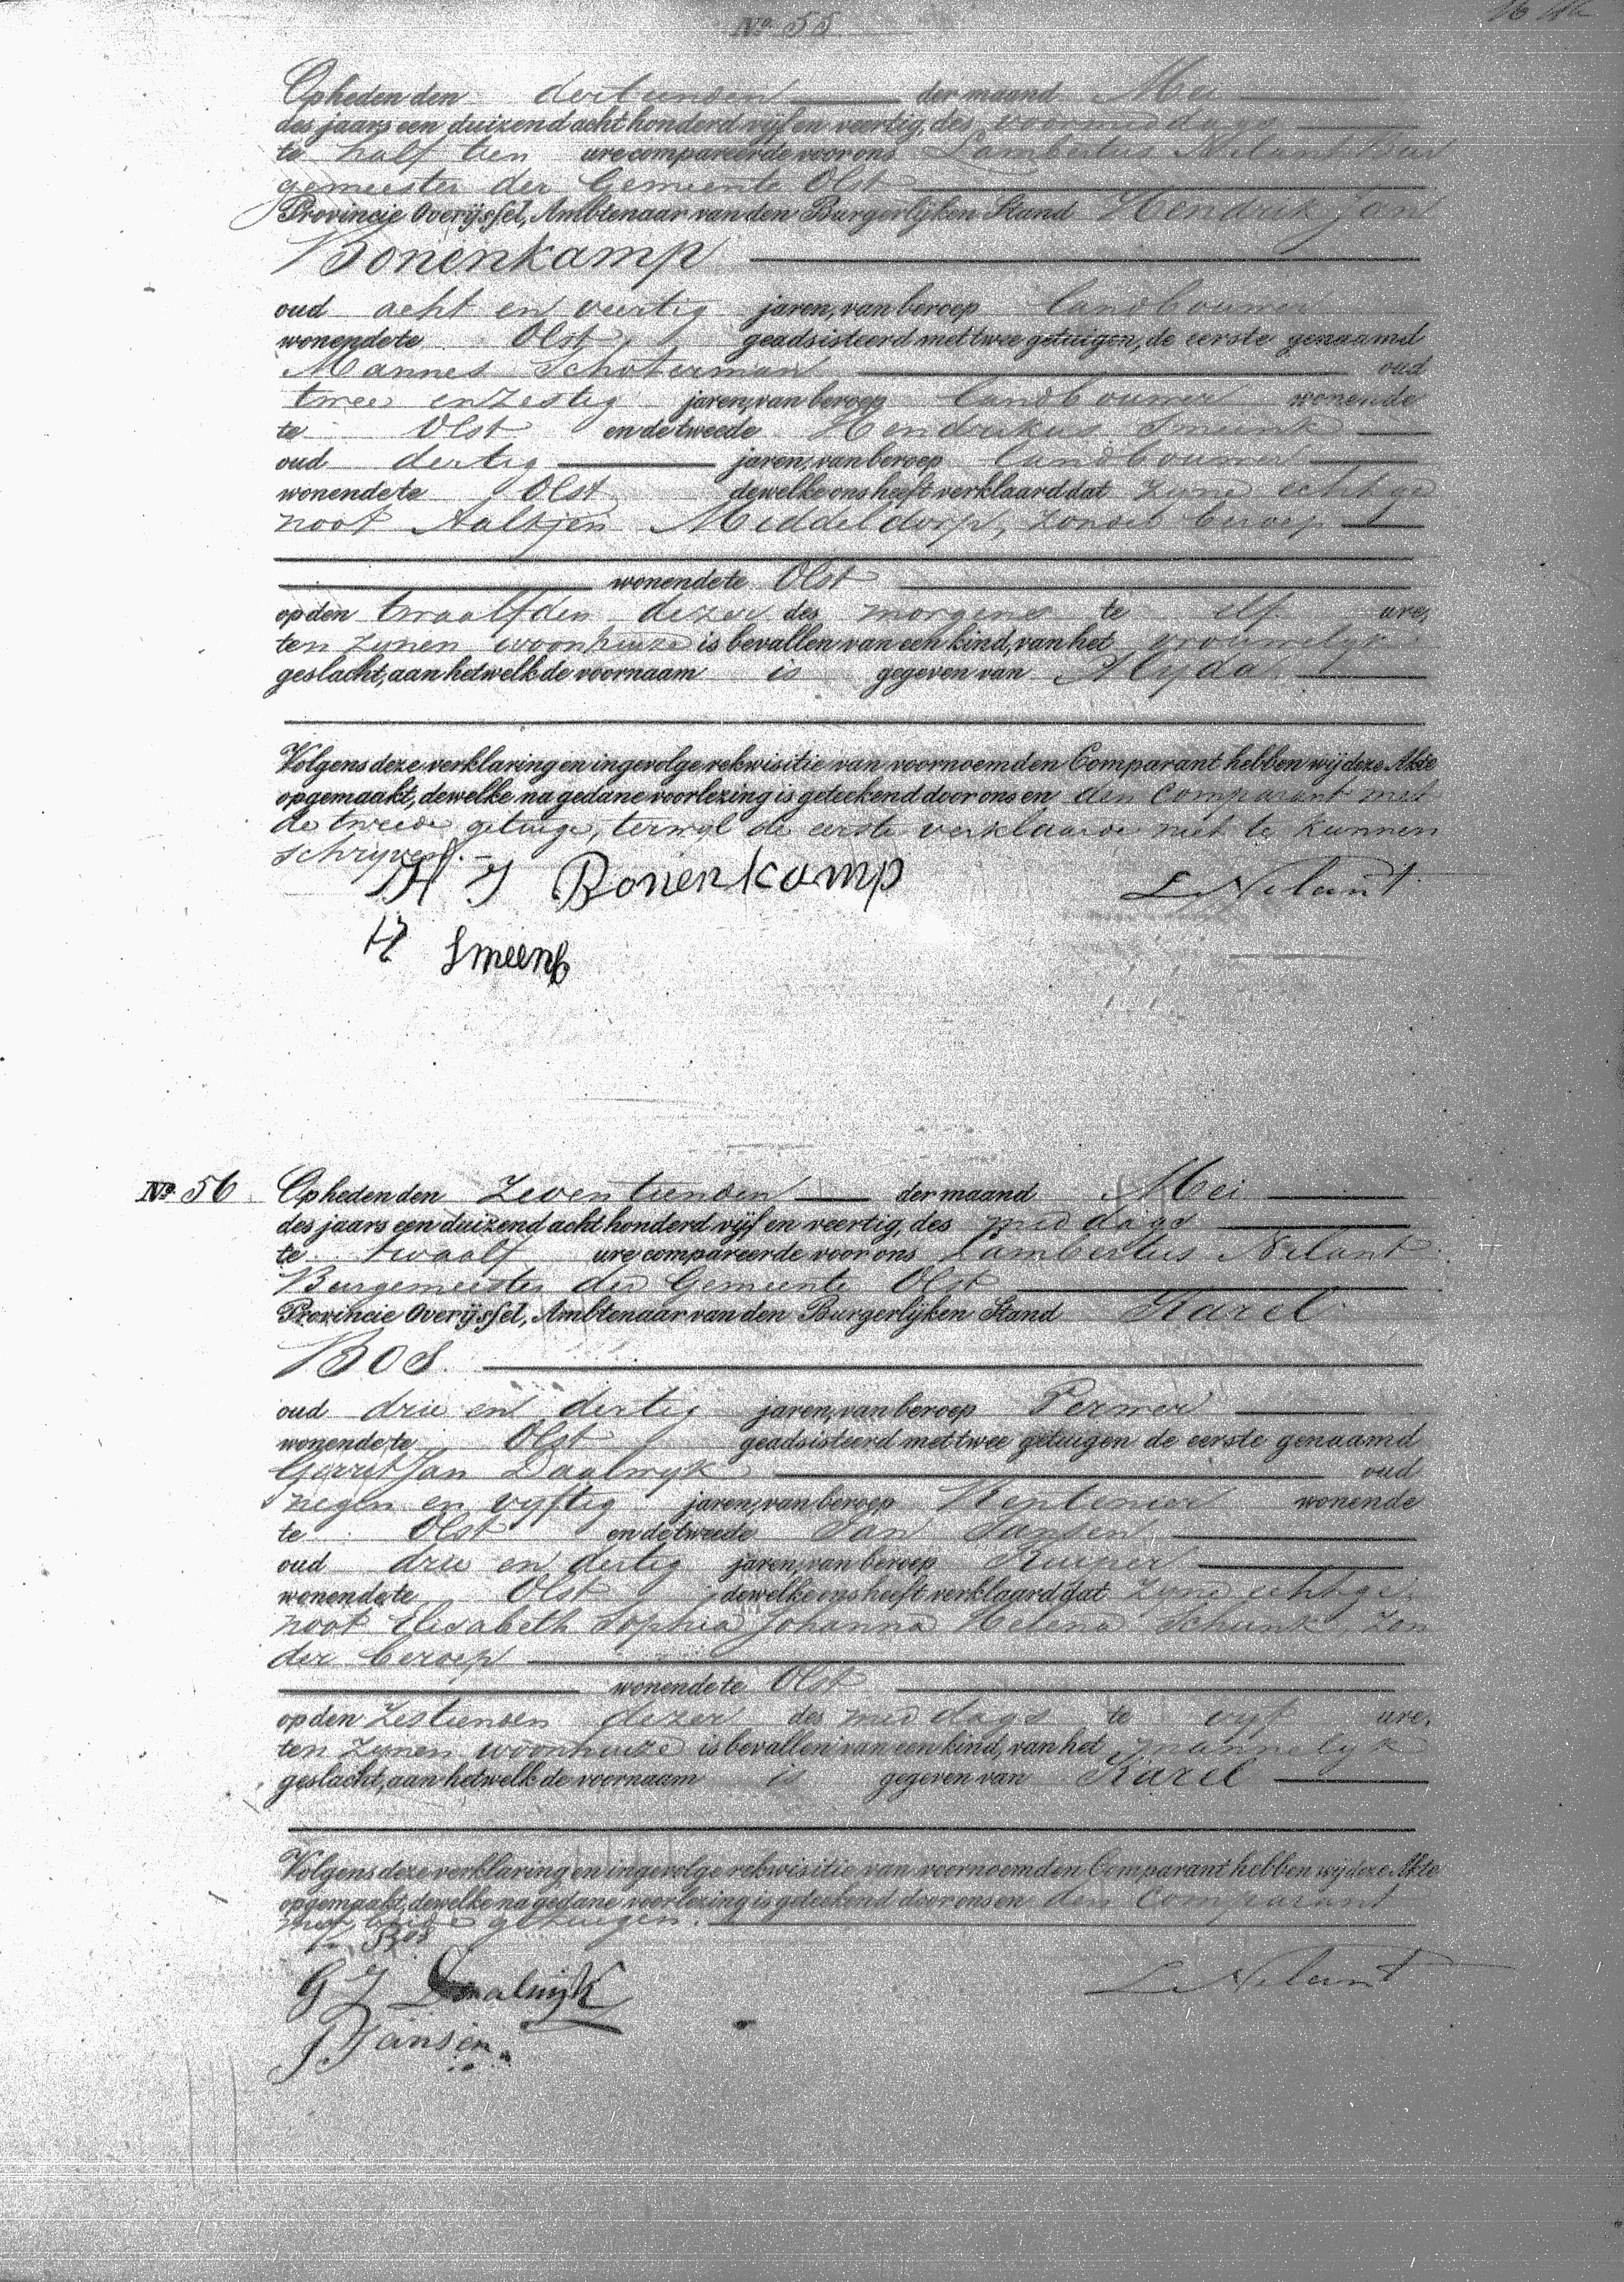 Nº 55
Op heden den dertienden der maand Mei
des jaars een duizend acht honderd vijf en veertig, des voormiddags
te half tien ure compareerde voor ons Lambertus Nilant Bur
gemeester der Gemeente Olst
Provincie Overijssel, Ambtenaar van den Burgerlijken Stand Hendrik Jan
Bonenkamp
oud acht en veertig jaren, van beroep landbouwer
wonende te Olst geadsisteerd met twee getuigen, de eerste genaamd
Mannes Schoterman oud
twee en zestig jaren, van beroep landbouwer wonende
te Olst en de tweede Hendrikus Smeenk
oud dertig jaren, van beroep landbouwer
wonende te Olst dewelke ons heeft verklaard dat zyne echtge
noot Aaltjen Middeldorp, zonder beroep
wonende te Olst
op den twaalfden dezer des morgens te elf ure,
ten zynen woonhuize is bevallen van een kind, van het vrouwelyk
geslacht, aan hetwelk de voornaam is gegeven van Alyda.
Volgens deze verklaring en ingevolge rekwisitie van voornoemden Comparant hebben wij deze Akte
opgemaakt, dewelke na gedane voorlezing is geteekend door ons en den Comparant met
de tweede getuige, terwyl de eerste verklaarde niet te kunnen
schryven.
H J Bonenkamp L Nilant
H Smeenk
Nº 56 Op heden den zeventienden der maand Mei
des jaars een duizend acht honderd vijf en veertig, des middags
te twaalf ure compareerde voor ons Lambertus Nilant
Burgemeester der Gemeente Olst
Provincie Overijssel, Ambtenaar van den Burgerlijken Stand Karel
Bos
oud drie en dertig jaren, van beroep Verwer
wonende te Olst geadsisteerd met twee getuigen de eerste genaamd
Gerrit Jan Daalwyk oud
negen en vyftig jaren, van beroep Rentenier wonende
te Olst en de tweede Jan Jansen
oud drie en dertig jaren, van beroep Kuiper
wonende te Olst dewelke ons heeft verklaard dat zyne echtge
noot Elisabeth Sophia Johanna Helena Schunk, zon
der beroep
wonende te Olst
op den zestienden dezer des middags te vyf ure,
ten zynen woonhuize is bevallen van een kind, van het mannelyk
geslacht, aan hetwelk de voornaam is gegeven van Karel
Volgens deze verklaring en ingevolge rekwisitie van voornoemden Comparant hebben wij deze Akte
opgemaakt, dewelke na gedane voorlezing is geteekend door ons en den Comparant
met beide getuigen.
K. Bos
G J Daalwijk L Nilant
J Jansen.